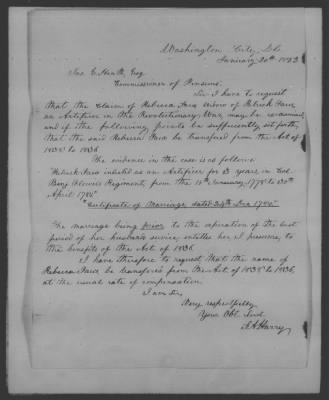 Washington City, D.C.
January 20th 1853
Jas. E. Heath, Esq
Commissioner of Pensions.
Sir I have to request
that the claim of Rebecca widow of
an Artificer in the Revolutionary War, may be examined,
and if the following proofs be sufficiently set forth,
that the said Rebecca be transferred from the Act of
1838 to 1836
The evidence in the case is as follows
enlisted as an Artificer for 3 years, in Col.
Regiment, from the January, 1778 to
April 1780"
"Certificate of Marriage dated
The marriage being prior to the expiration of the last
period of her husbands service, entitles her I presume, to
the benefits of the Act of 1836.
I have therefore to request that the name of
Rebecca be transferred from the Act of 1838 to 1836,
at the usual rate of compensation.
I am Sir,
Very respectfully
Your Obt. Svt.
Harry